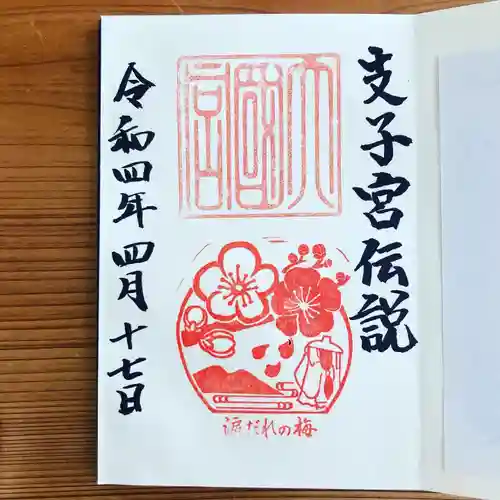 支子宮伝説
涙だれの梅
令和四年四月十七日